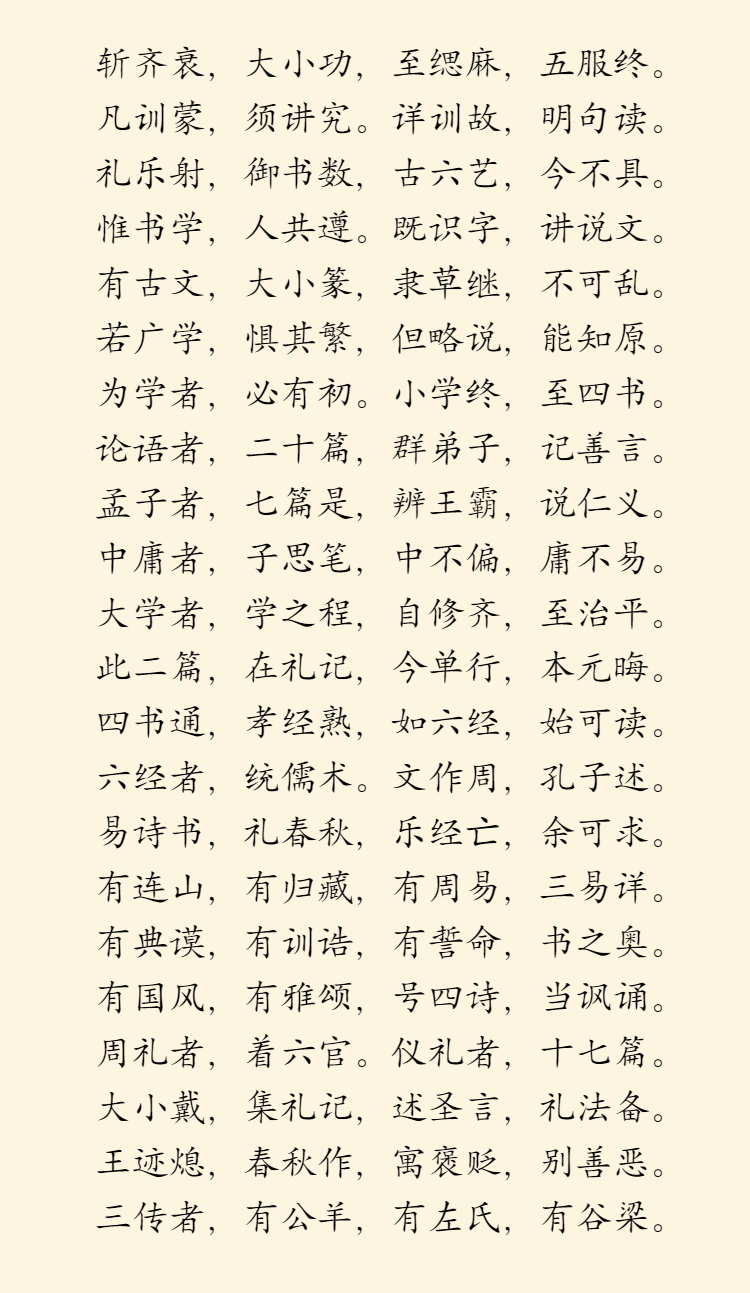 斩齐衰，大小功，至缌麻，五服终。
凡训蒙，须讲究。详训故，明句读。
礼乐射，御书数，古六艺，今不具。
惟书学，人共遵。既识字，讲说文。
有古文，大小篆，隶草继，不可乱。
若广学，惧其繁，但略说，能知原。
为学者，必有初。小学终，至四书。
论语者，二十篇，群弟子，记善言。
孟子者，七篇是，辨王霸，说仁义。
中庸者，子思笔，中不偏，庸不易。
大学者，学之程，自修齐，至治平。
此二篇，在礼记，今单行，本元晦。
四书通，孝经熟，如六经，始可读。
六经者，统儒术。文作周，孔子述。
易诗书，礼春秋，乐经亡，余可求。
有连山，有归藏，有周易，三易详。
有典谟，有训诰，有誓命，书之奥。
有国风，有雅颂，号四诗，当讽诵。
周礼者，着六官。仪礼者，十七篇。
大小戴，集礼记，述圣言，礼法备。
王迹熄，春秋作，寓褒贬，别善恶。
三传者，有公羊，有左氏，有谷梁。